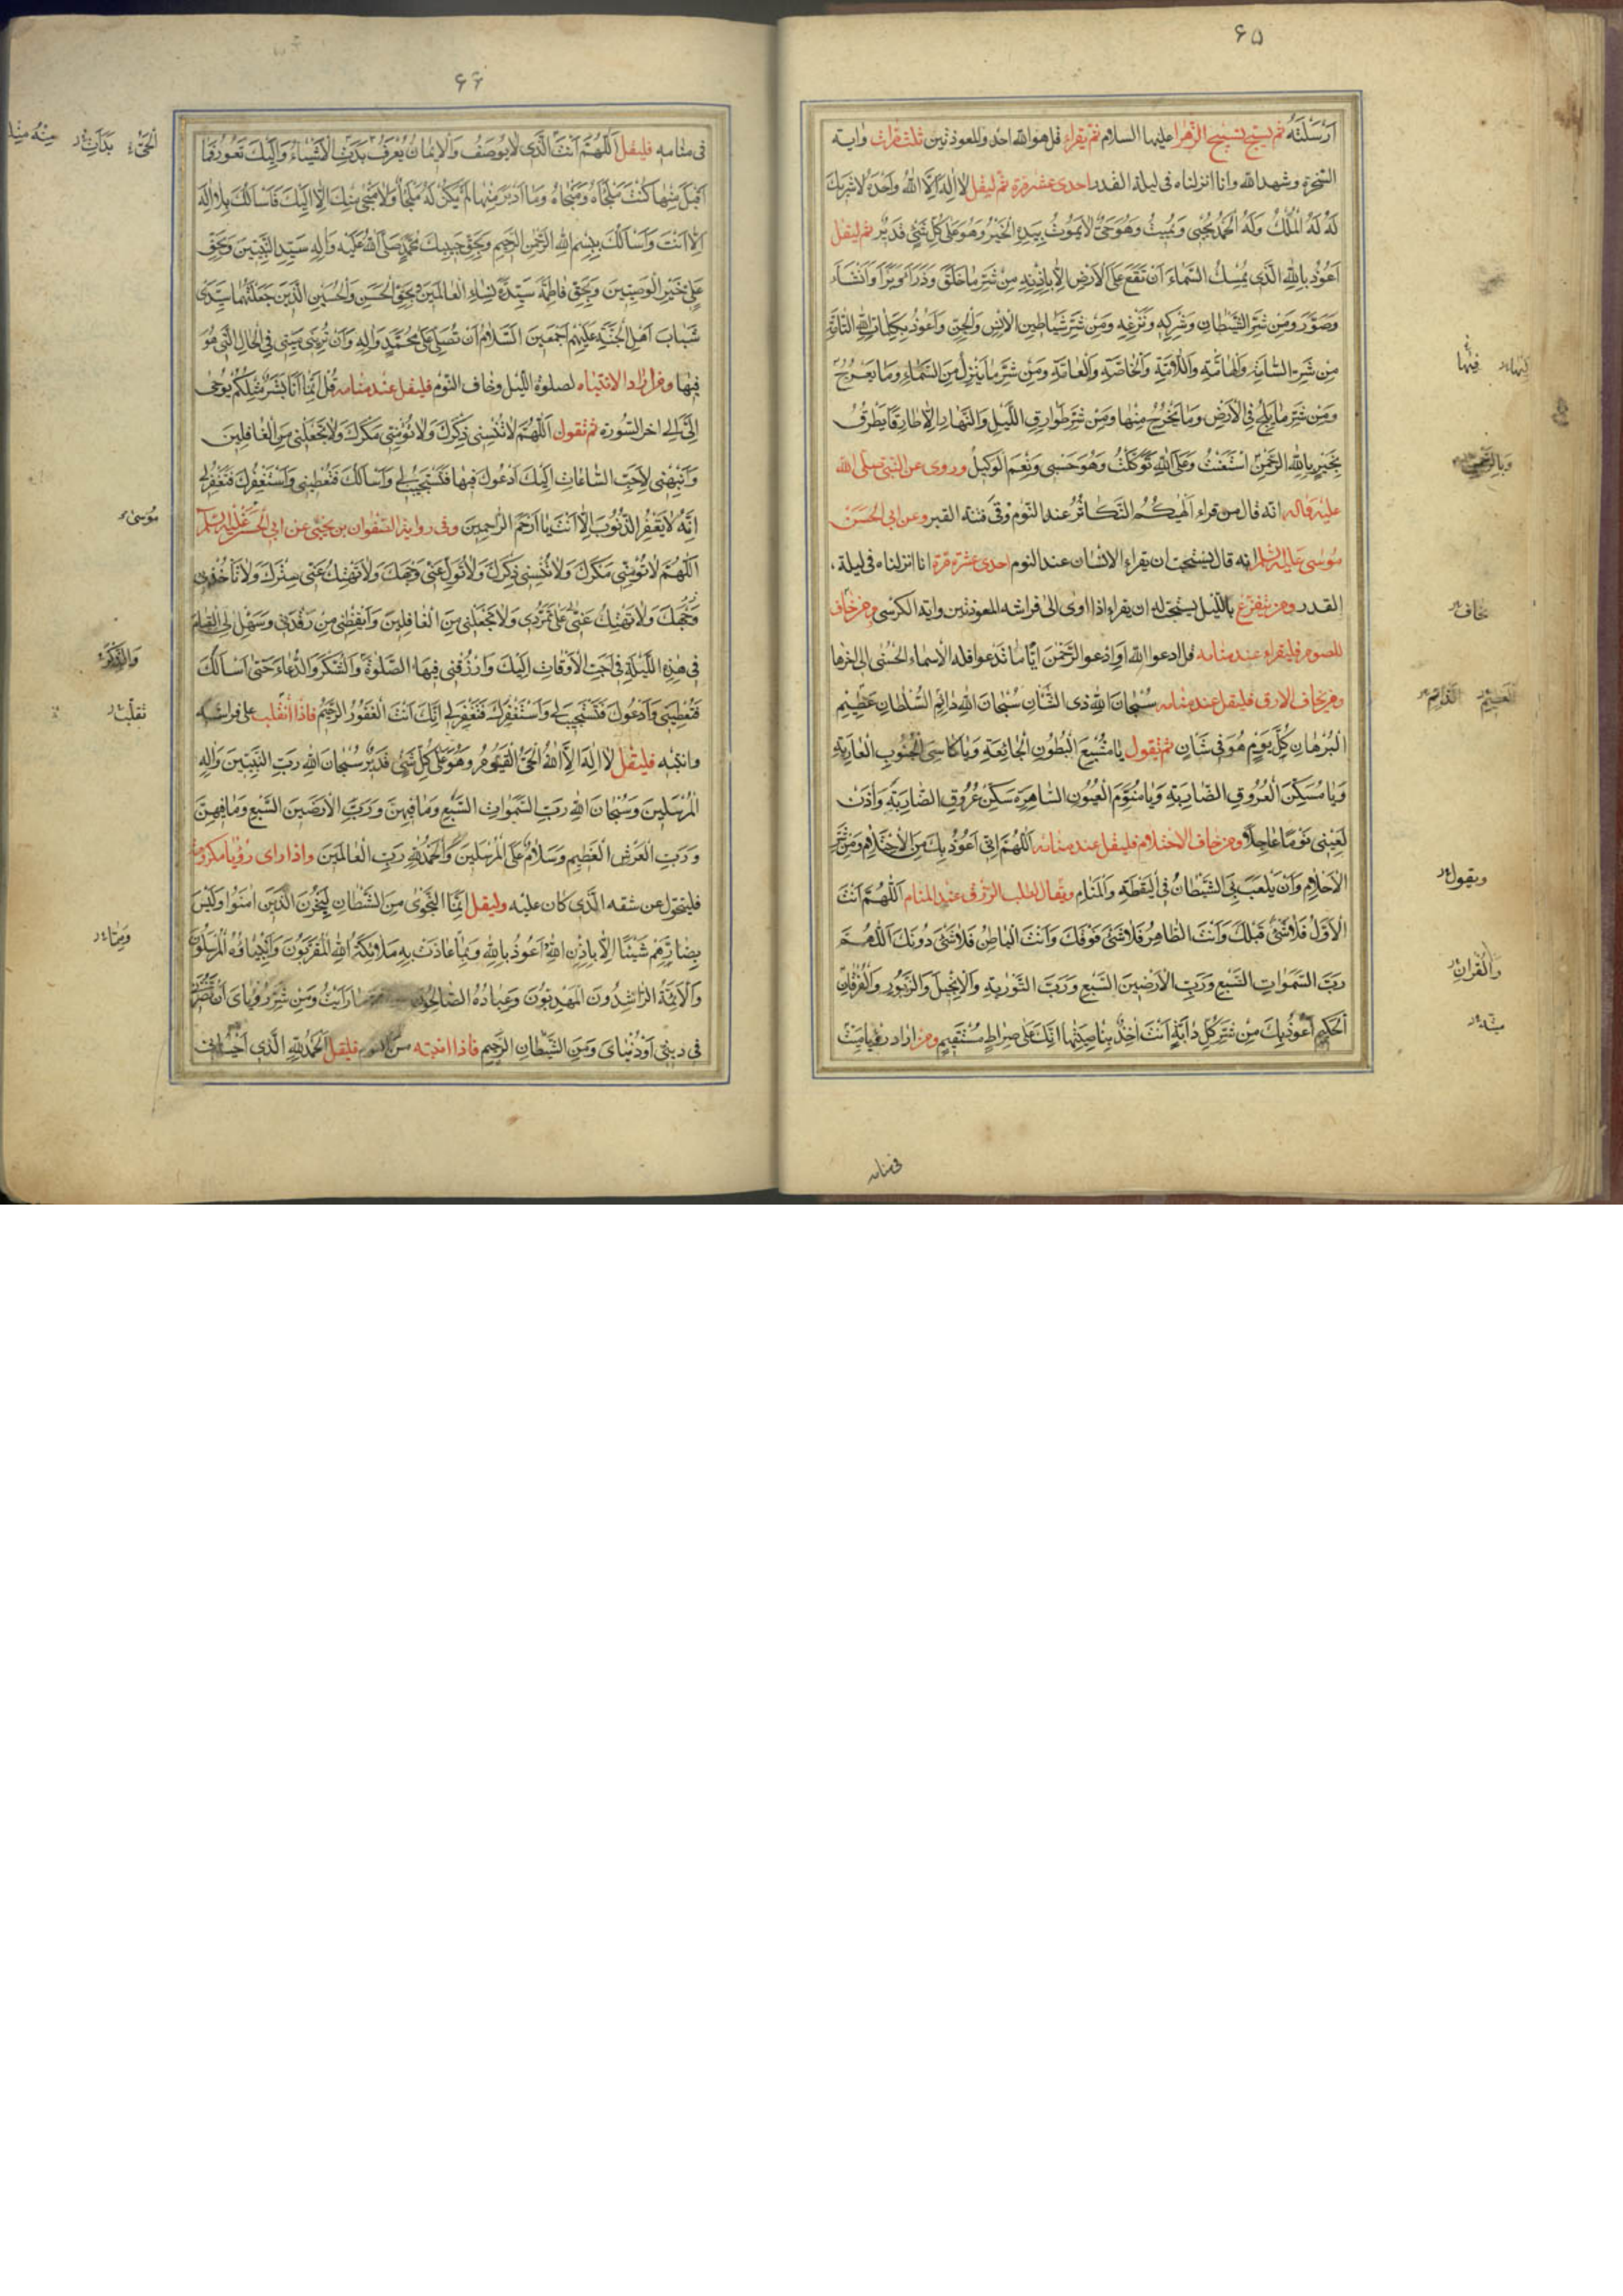 ٦٥
اَرْسَلْتَهُ ثم يسبح تسبيح الزهراء عليها السلام ثم يقراء قل هو الله احد والمعوذتين ثلث مرات واية
السخرة وشهد الله وانا انزلناه فى ليلة القدر احدى عشر مرة ثم ليقل لا اله الا الله وحده لا شريك
له له الملك وله الحمد يحيى ويميت وهو حى لا يموت بيده الخير وهو على كل شئ قدير ثم ليقل
اعوذ بالله الذى يمسك السماء ان تقع على الارض الا باذنه من شر ما خلق وذرأ وبرأ وانشأ
وصور ومن شر الشيطان وشركه ونزغه ومن شر شياطين الانس والجن واعوذ بكلمات الله التامة
من شر السامة والهامة واللامة والخاصة والعامة ومن شر ما ينزل من السماء وما يعرج
ومن شر ما يلج فى الارض وما يخرج منها ومن شر طوارق الليل والنهار الا طارقا يطرق
بخير بالله الرحمن استغثت وعلى الله توكلت وهو حسبى ونعم الوكيل وروى عن النبى صلى الله
عليه وآله انه قال من قراء الهيكم التكاثر عند النوم وقى فتنة القبر وعن ابى الحسن
موسى عليه السلم انه قال يستحب ان يقراء الانسان عند النوم احدى عشرة مرة انا انزلناه فى ليلة
القدر ومن يتفزع بالليل يستحب له ان يقراء اذا اوى الى فراشه المعوذتين واية الكرسى ومن خاف
اللصوص فليقراء عند منامه قل ادعوا الله او ادعوا الرحمن ايا ما تدعوا فله الاسماء الحسنى الى اخرها
ومن يخاف الارق فليقل عند منامه سبحان الله ذى الشان سبحان الله دائم السلطان عظيم
البرهان كل يوم هو فى شان ثم تقول يا مشبع البطون الجائعة ويا كاسى الجنوب العارية
ويا مسكن العروق الضاربة ويا منوم العيون الساهرة سكن عروقى الضاربة واذن
لعينى نوما عاجلا ومن خاف الاحتلام فليقل عند منامه اللهم انى اعوذ بك من الاحتلام ومن شر
الاحلام وان يلعب بى الشيطان فى اليقظة والمنام ويقال لطلب الرزق عند المنام اللهم انت
الاول فلا شئ قبلك وانت الظاهر فلا شئ فوقك وانت الباطن فلا شئ دونك اللهم
رب السموات السبع ورب الارضين السبع ورب التورية والانجيل والزبور والفرقان
الحكيم اعوذ بك من شر كل دابة انت اخذ بناصيتها انك على صراط مستقيم ومن اراد رؤيا ميت
فى منامه
فيها
يخاف
العظيم
ويقول
والقران
٦٦
فى منامه فليقل اللهم انت الذى لا يوصف والايمان يعرف بدت الاشياء واليك تعود فما
اقبل منها كنت ملجأه ومنجاه وما ادبر منها لم يكن له ملجأ ولا منجى منك الا اليك فاسالك بلا اله
الا انت واسالك ببسم الله الرحمن الرحيم وبحق حبيبك محمد صلى الله عليه واله سيد النبيين وبحق
على خير الوصيين وبحق فاطمة سيدة نساء العالمين وبحق الحسن والحسين الذين جعلتهما سيدى
شباب اهل الجنة عليهم اجمعين السلام ان تصلى على محمد واله وان ترينى ميتى فى الحال التى هو
فيها ومن اراد الانتباه لصلوة الليل وخاف النوم فليقل عند منامه قل انما انا بشر مثلكم يوحى
الى الى اخر السورة ثم تقول اللهم لا تنسنى ذكرك ولا تؤمنى مكرك ولا تجعلنى من الغافلين
وانبهنى لاحب الساعات اليك ادعوك فيها فتستجيب لى واسالك فتعطينى واستغفرك فتغفر لى
انه لا يغفر الذنوب الا انت يا ارحم الراحمين وفى رواية الصفوان بن يحيى عن ابى الحسن عليه السلم
اللهم لا تؤمنى مكرك ولا تنسنى ذكرك ولا تول عنى وجهك ولا تهتك عنى سترك ولا تاخذنى
ولا تهتك عنى على تمردى ولا تجعلنى من الغافلين وايقظنى من رقدتى وسهل لى القيام
فى هذه الليلة فى احب الاوقات اليك وارزقنى فيها الصلوة والشكر والدعاء حتى اسالك
فتعطينى وادعوك فتستجيب لى واستغفرك فتغفر لى انك انت الغفور الرحيم فاذا انقلب على فراشه
وانتبه فليقل لا اله الا الله الحى القيوم وهو على كل شئ قدير سبحان الله رب النبيين واله
المرسلين وسبحان الله رب السموات السبع وما فيهن ورب الارضين السبع وما فيهن
ورب العرش العظيم وسلام على المرسلين والحمد لله رب العالمين واذا راى رؤيا مكروهة
فليتحول عن شقه الذى كان عليه وليقل انما النجوى من الشيطان ليحزن الذين امنوا وليس
بضارهم شيئا الا باذن الله اعوذ بالله وبما عاذت به ملائكة الله المقربون وانبياؤه المرسلون
والائمة الراشدون المهديون وعباده الصالحون رايت ومن شر رؤياى ان تضرنى
فى دينى او دنياى ومن الشيطان الرجيم فاذا انتبه من النوم فليقل الحمد لله الذى احيانى
بدات
منه
موسى
تقلب